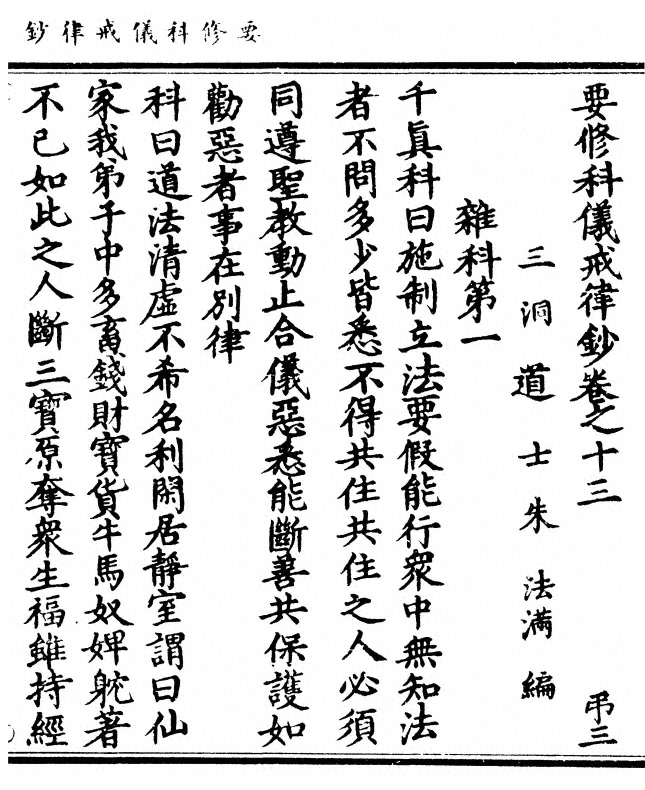 要修科儀戒律鈔
要修科儀戒律鈔卷之十三 弔三
三洞道士朱法滿編
雜科第一
千真科曰施制立法要假能行衆中無知法
者不問多少皆悉不得共住共住之人必須
同遵聖教動止合儀惡悉能斷善共保護如
勸惡者事在別律
科曰道法清虛不希名利閑居靜室謂曰仙
家我弟子中多畜錢財寶貨牛馬奴婢躭著
不已如此之人斷三寶原奪衆生福雖持經